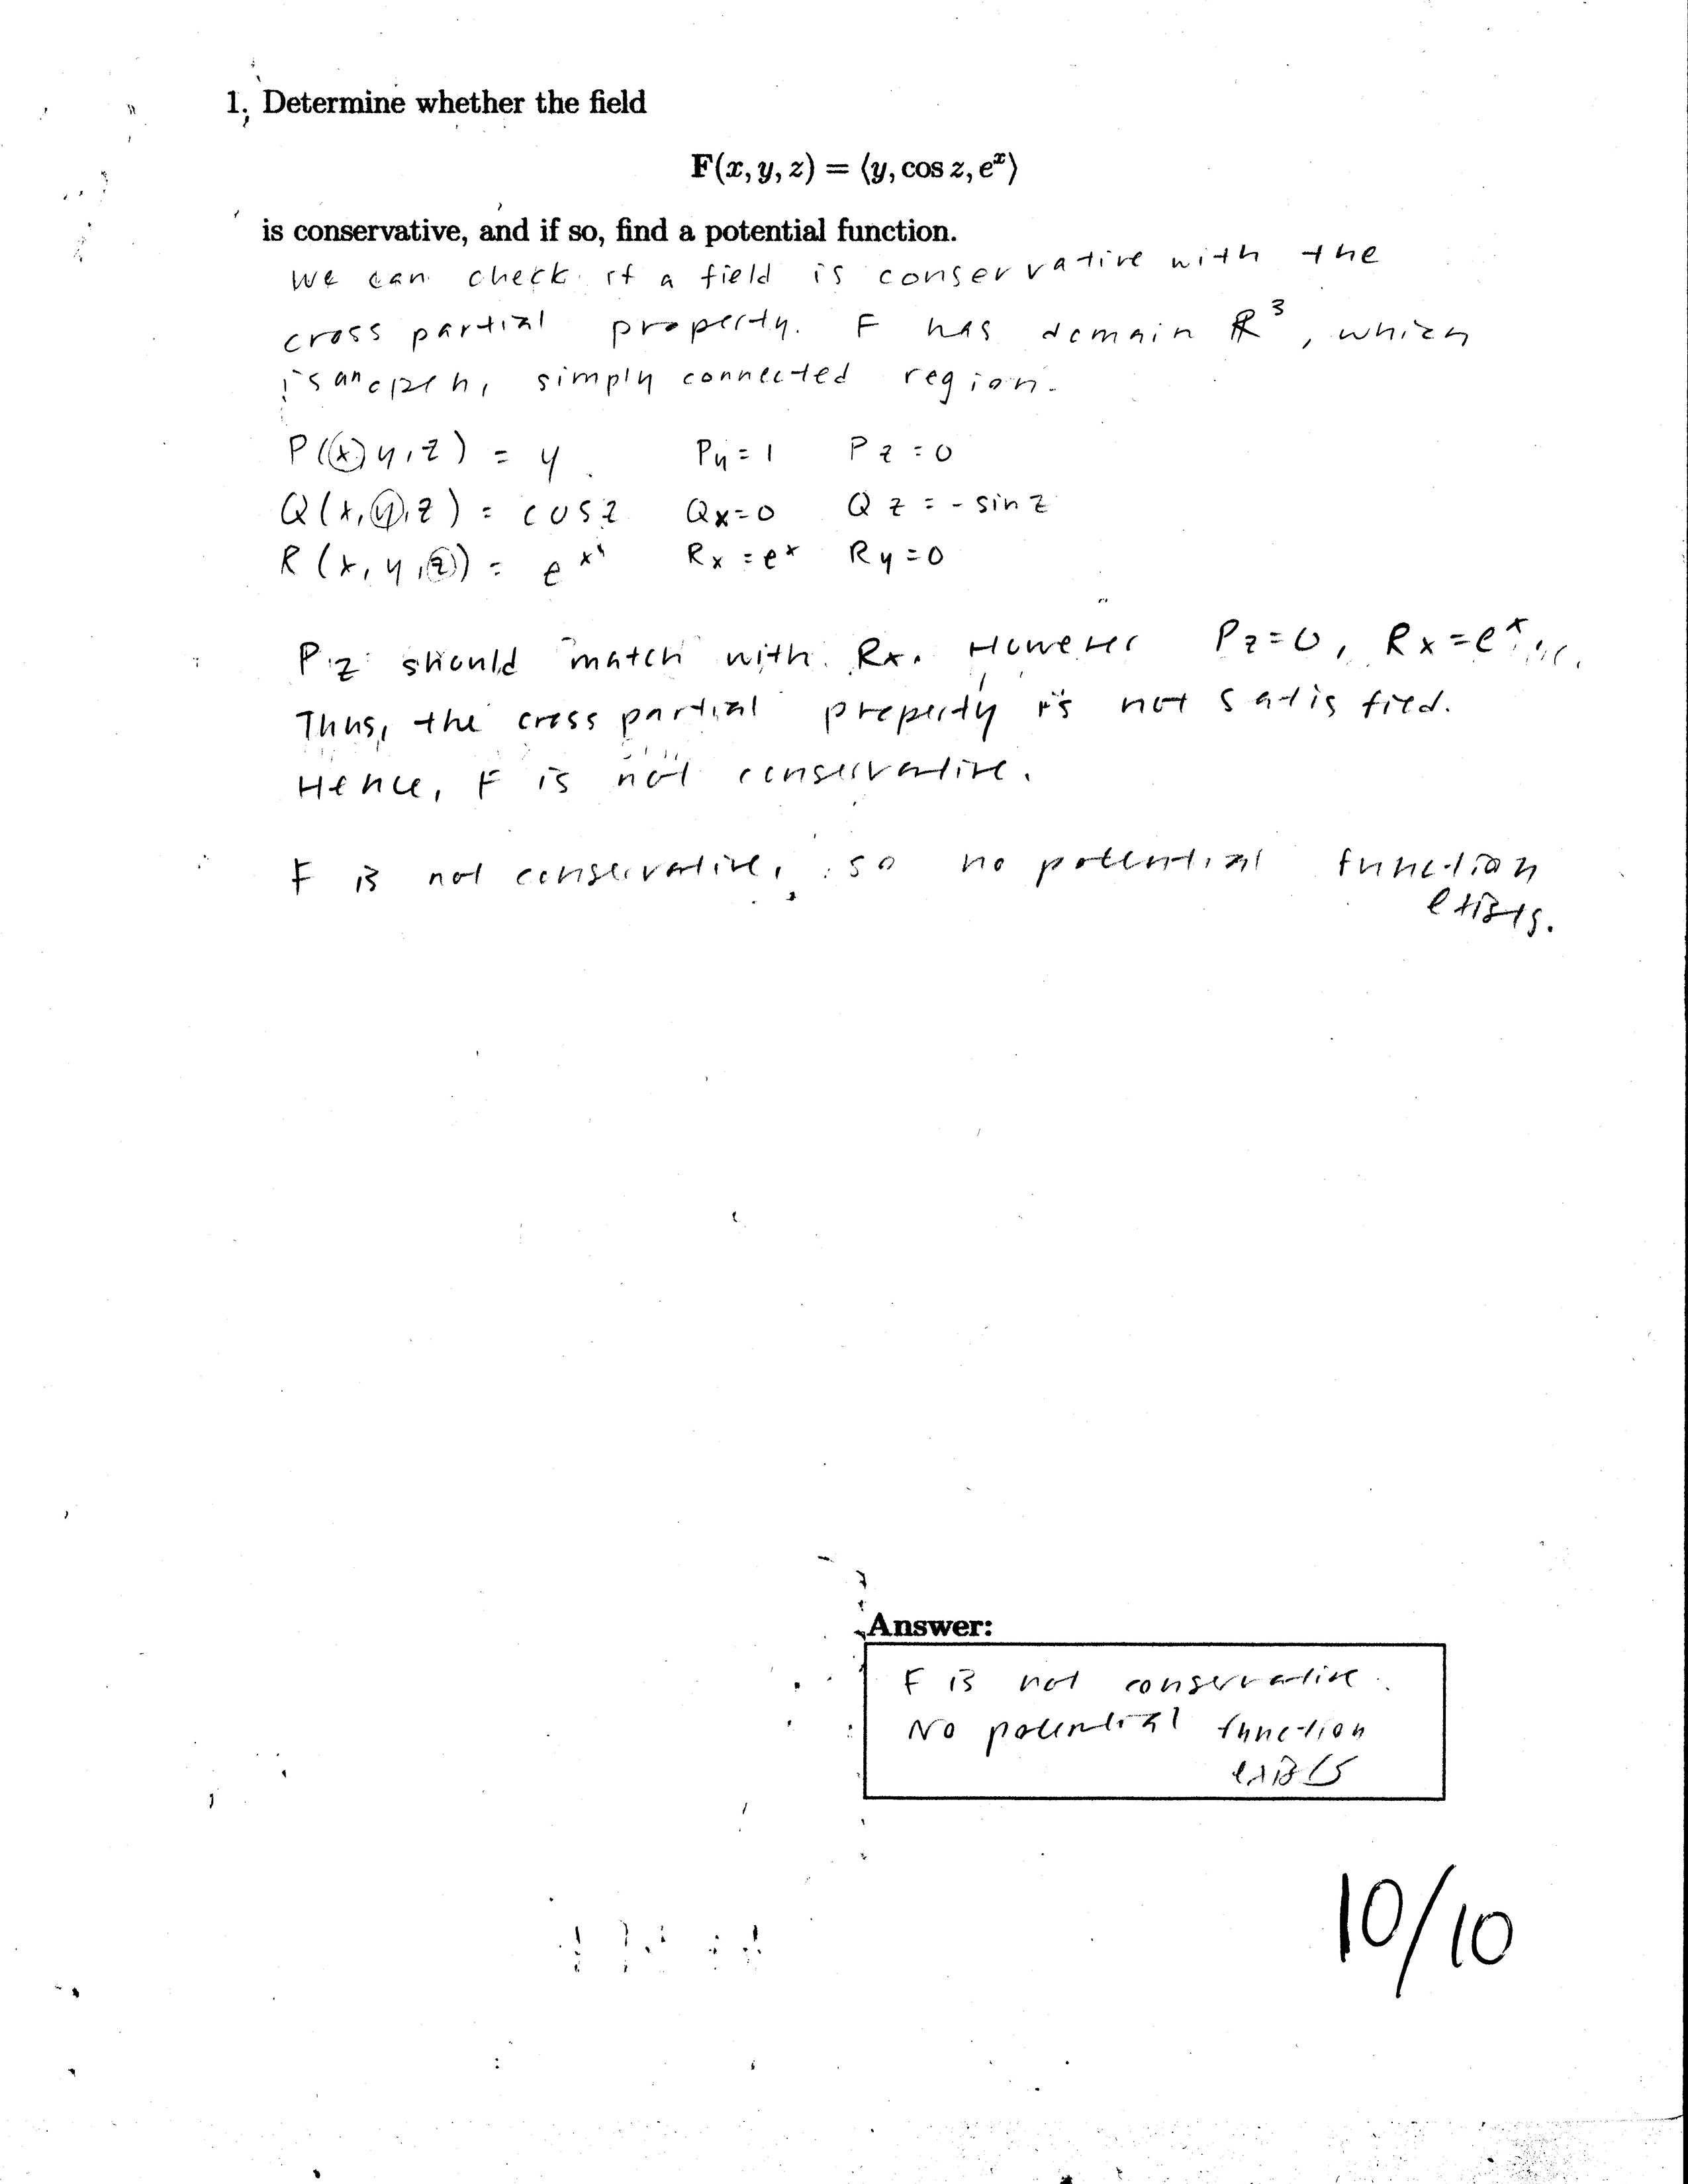 1. Determine whether the field
F(x, y, z) = ⟨y, cos z, eˣ⟩
is conservative, and if so, find a potential function.
We can check if a field is conservative with the
cross partial property. F has domain ℝ³, which
is an open, simply connected region.
P(x, y, z) = y Py = 1 Pz = 0
Q(x, y, z) = cos z Qx = 0 Qz = - sin z
R(x, y, z) = eˣ Rx = eˣ Ry = 0
Pz should match with Rx. However Pz = 0, Rx = eˣ.
Thus, the cross partial property is not satisfied.
Hence, F is not conservative.
F is not conservative, so no potential function
exists.
Answer:
F is not conservative.
No potential function
exists
10/10